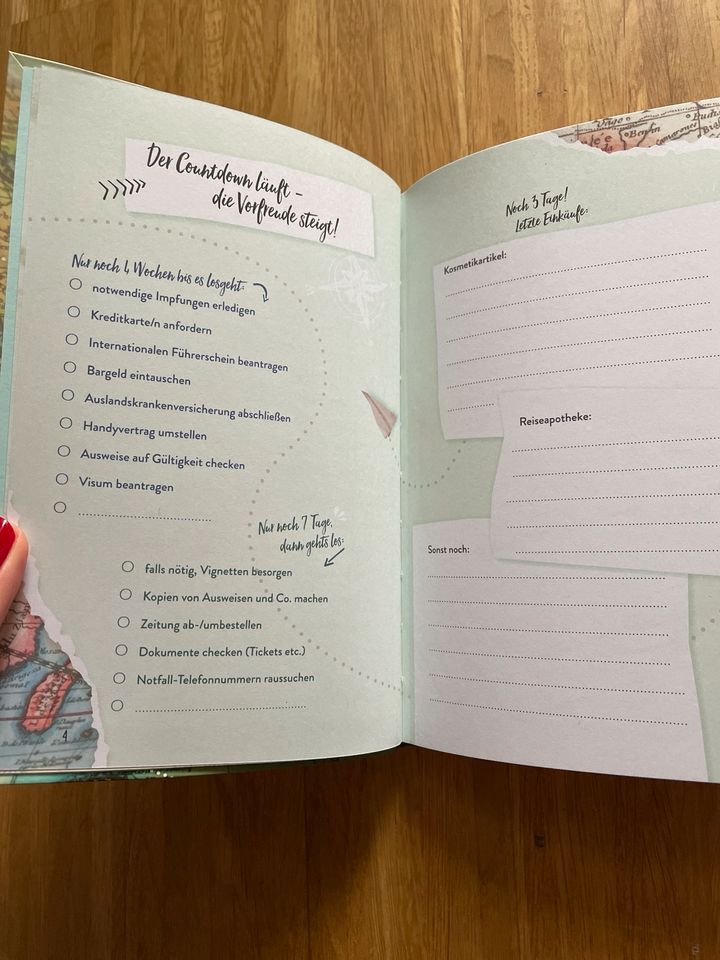 Der Countdown läuft –
die Vorfreude steigt!
Nur noch 4 Wochen bis es losgeht:
notwendige Impfungen erledigen
Kreditkarte/n anfordern
Internationalen Führerschein beantragen
Bargeld eintauschen
Auslandskrankenversicherung abschließen
Handyvertrag umstellen
Ausweise auf Gültigkeit checken
Visum beantragen
Nur noch 7 Tage,
dann gehts los:
falls nötig, Vignetten besorgen
Kopien von Ausweisen und Co. machen
Zeitung ab-/umbestellen
Dokumente checken (Tickets etc.)
Notfall-Telefonnummern raussuchen
4
Noch 3 Tage!
Letzte Einkäufe:
Kosmetikartikel:
Reiseapotheke:
Sonst noch:
Berlin